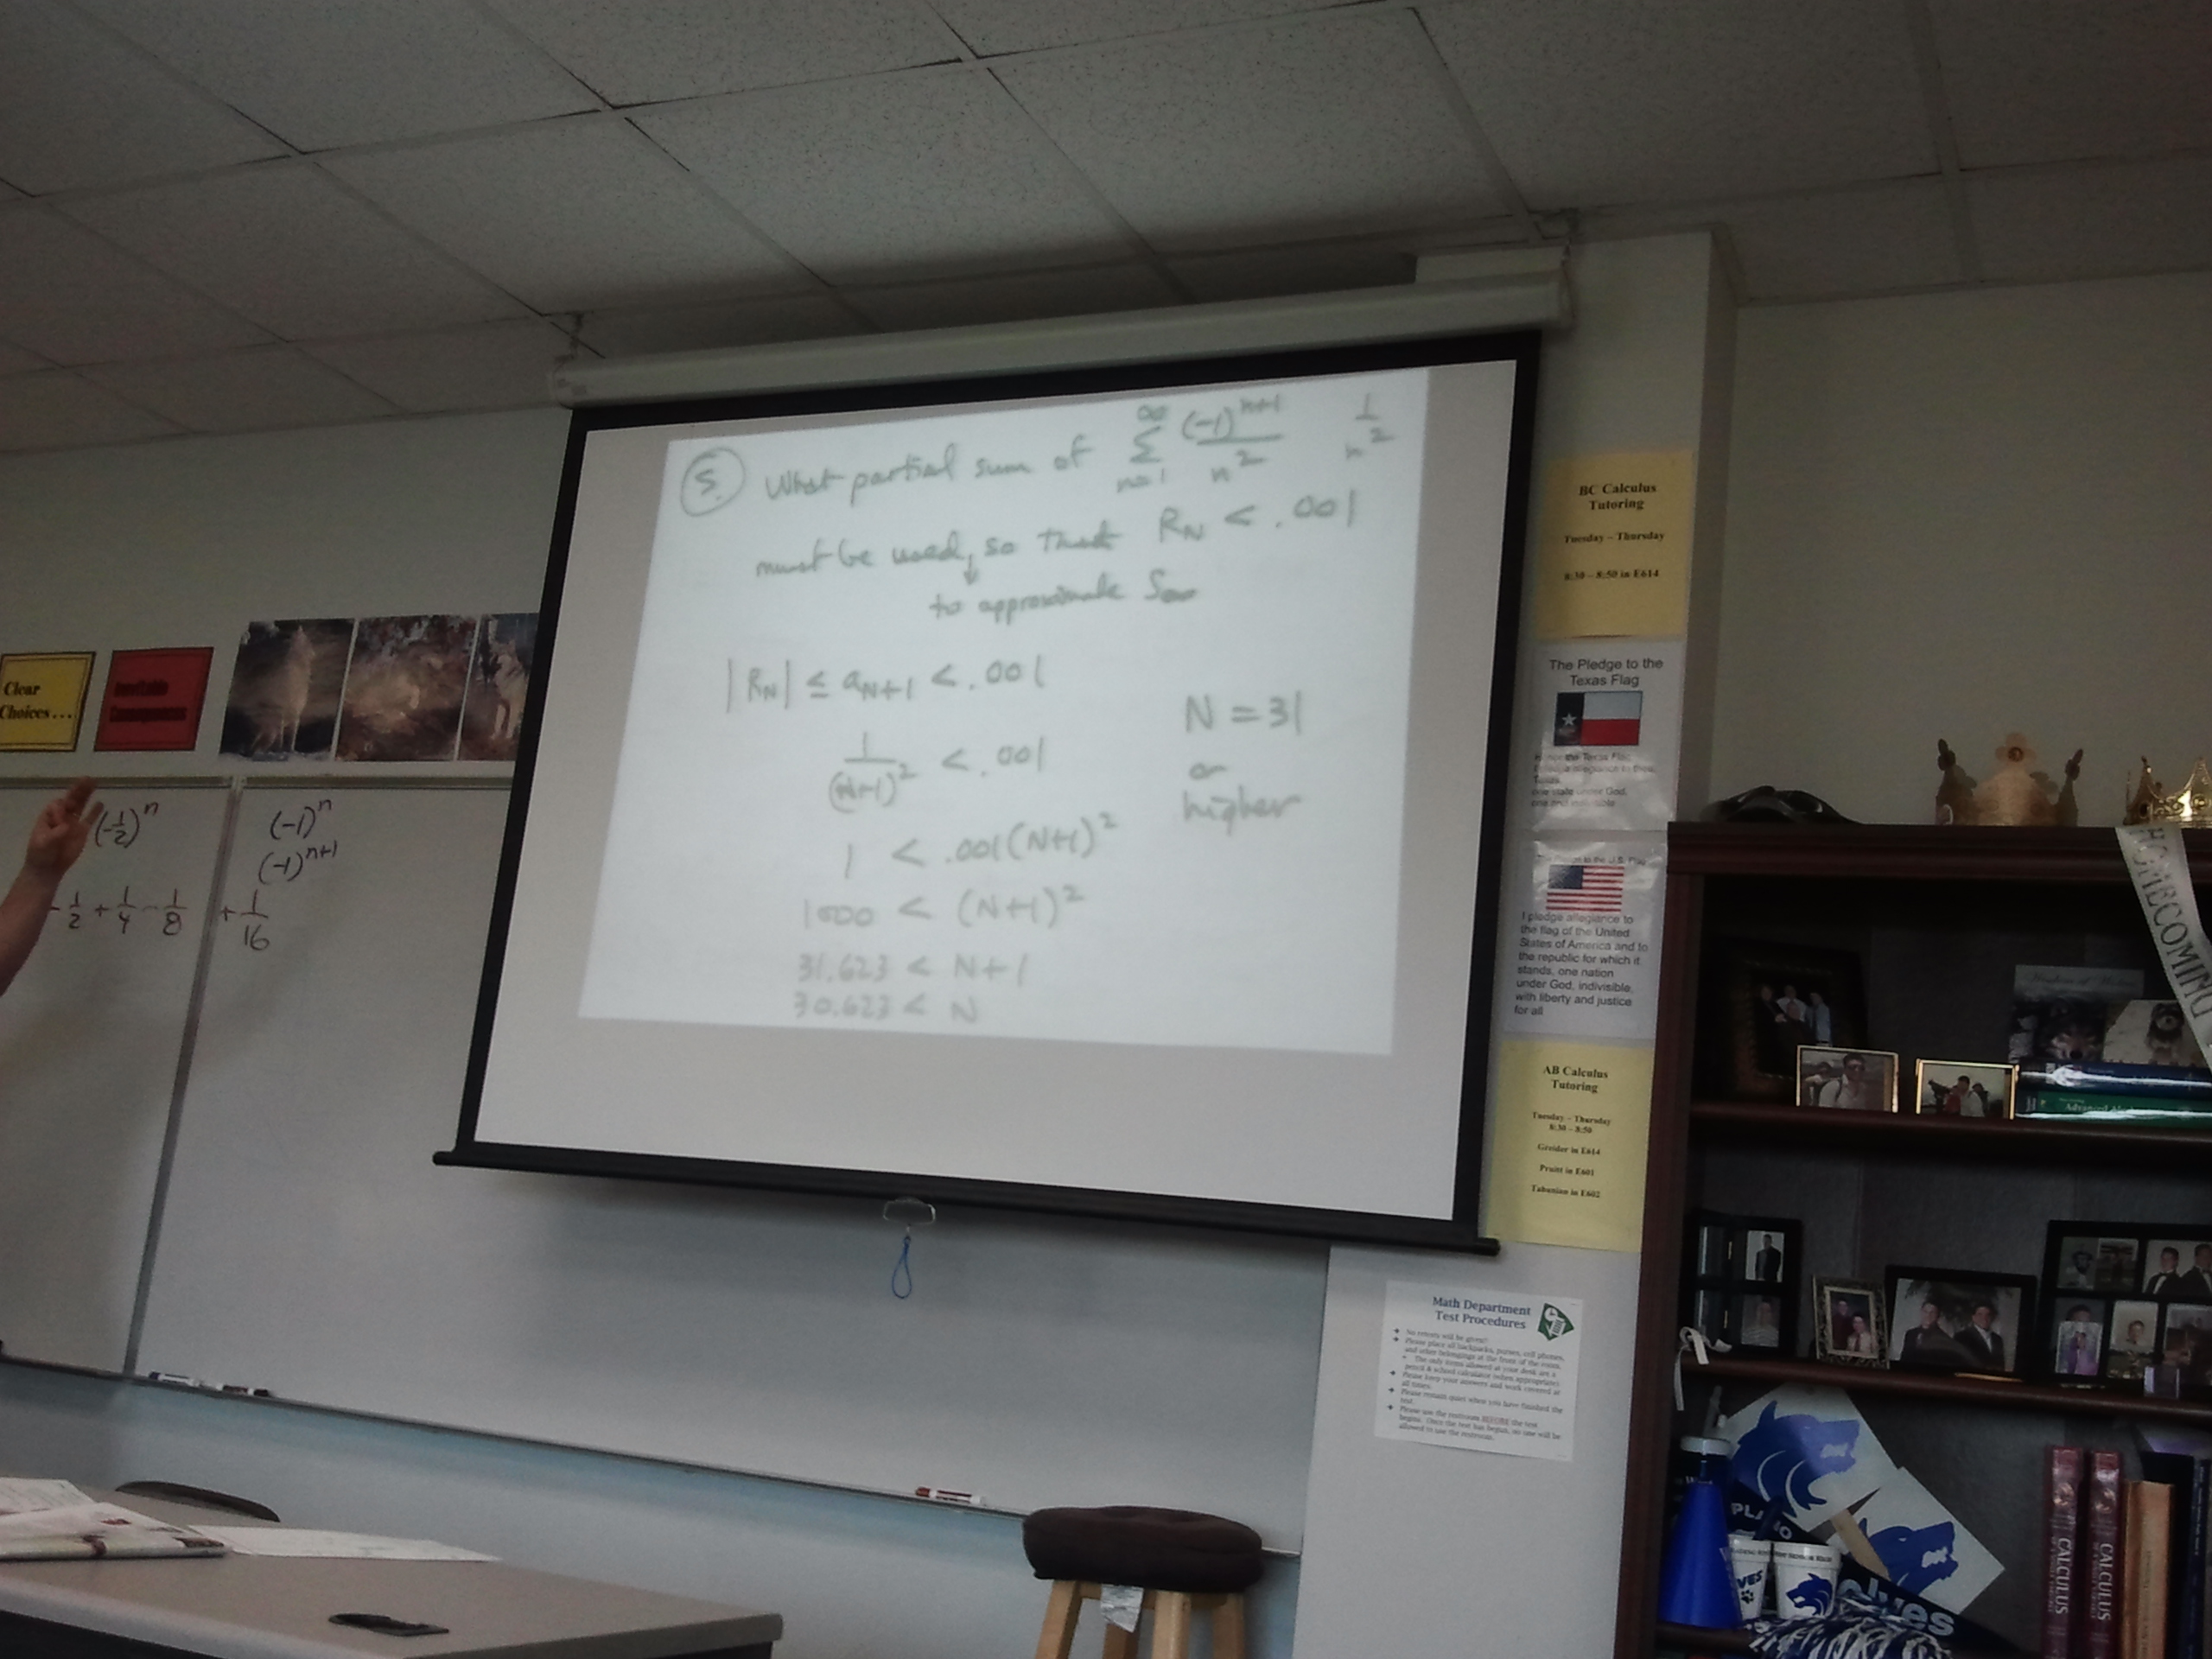 5. What partial sum of ∞ Σ n=1 (-1)^{n+1} / n^2   1/n^2
must be used, so that R_N < .001
to approximate S∞
|R_N| ≤ a_{N+1} < .001
1/(N+1)^2 < .001
1 < .001(N+1)^2
1000 < (N+1)^2
31.623 < N+1
30.623 < N
N = 31
or
higher
Clear
Choices...
Inevitable
Consequences
(-1/2)^n
-1/2 + 1/4 - 1/8 + 1/16
(-1)^n
(-1)^{n+1}
BC Calculus
Tutoring
Tuesday – Thursday
8:30 – 8:50 in E614
The Pledge to the
Texas Flag
I pledge allegiance to
the flag of the United
States of America and to
the republic for which it
stands, one nation
under God, indivisible,
with liberty and justice
for all
AB Calculus
Tutoring
Tuesday – Thursday
8:30 – 8:50
Greider in E614
Pruitt in E601
Tabanian in E602
Math Department
Test Procedures
No retests will be given!
Please place all backpacks, purses, cell phones,
and other belongings at the front of the room.
The only items allowed at your desk are a
pencil & school calculator (when appropriate)
Please keep your answers and work covered at
all times.
Please remain quiet when you have finished the
test.
Please use the restroom BEFORE the test
begins. Once the test has begun, no one will be
allowed to use the restroom.
HOMECOMING
PLANO
CALCULUS
CALCULUS